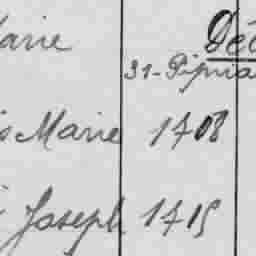 Marie Déc
31-Pipria
s Marie 1708
Joseph 1715